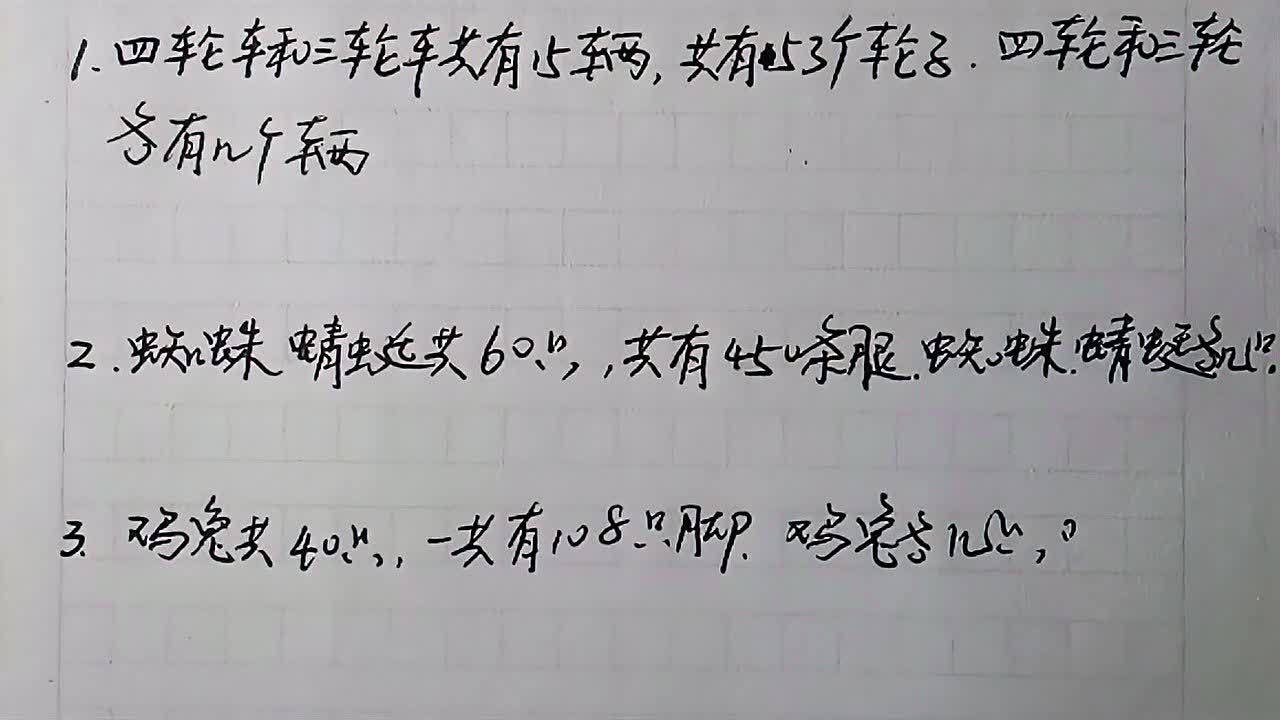 1. 四轮车和三轮车共有15辆, 共有53个轮子. 四轮和三轮
各有几个辆
2. 蜘蛛 蜻蜓共60只, 共有450条腿. 蜘蛛. 蜻蜓各几只.
3. 鸡兔共40只, 一共有108只脚. 鸡兔各几只,。